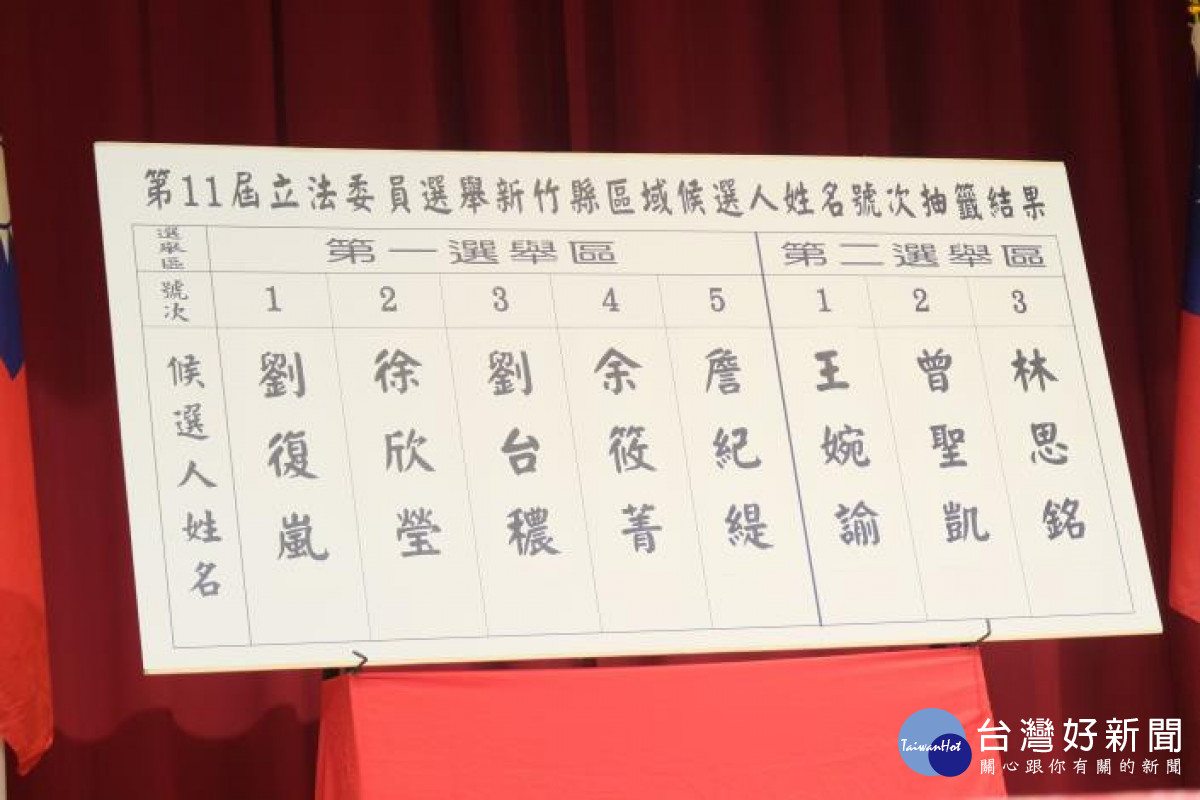 第11屆立法委員選舉新竹縣區域候選人姓名號次抽籤結果
選舉區 第一選舉區 第二選舉區
號次 1 2 3 4 5 1 2 3
候選人姓名 劉復嵐 徐欣瑩 劉台穠 余筱菁 詹紀緹 王婉諭 曾聖凱 林思銘
TaiwanHot 台灣好新聞
關心跟你有關的新聞